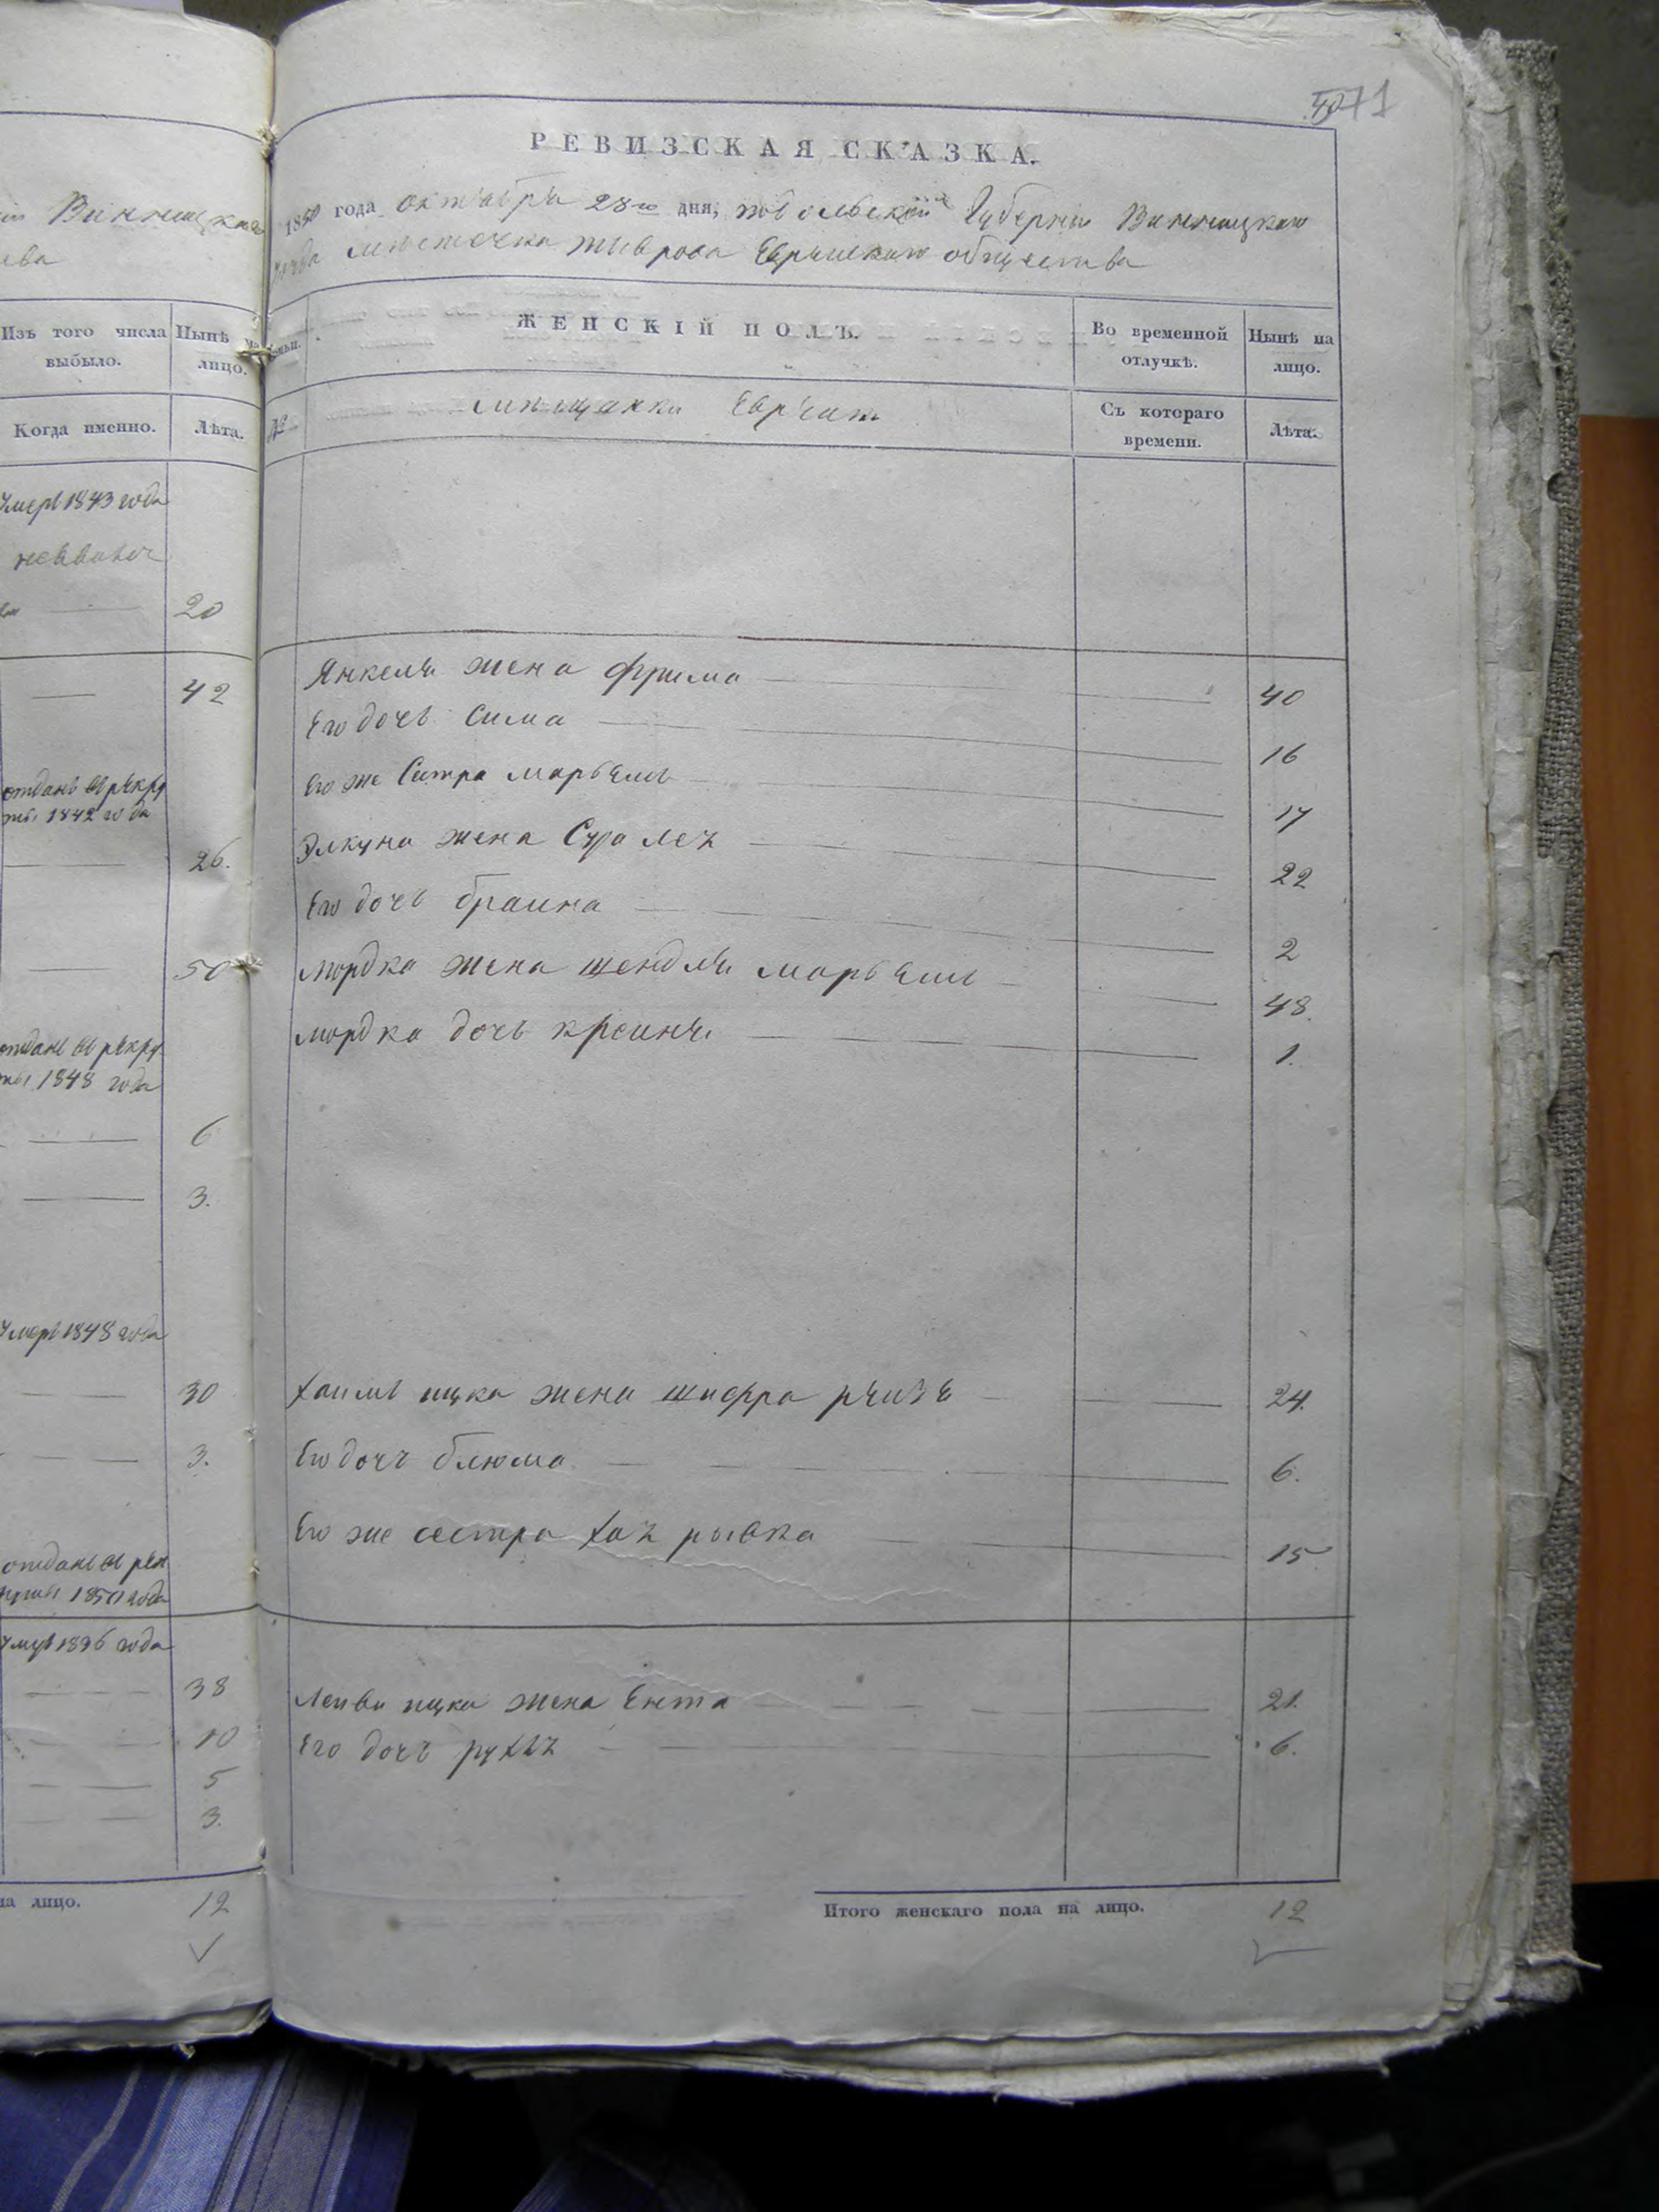 Винницкаго
Изъ того числа выбыло.
Ныне на лицо.
Когда именно.
Лѣта.
умеръ 1843 года
20
42
отданъ въ рекру
ты 1842 года
26.
50
отданъ въ рекру
ты 1848 года
6
3.
умеръ 1848 года
30
3.
отданъ въ рек
руты 1850 года
38
10
5
3.
на лицо.
12
71
РЕВИЗСКАЯ СКАЗКА.
1850 года октября 28го дня, подольской Губерніи Винницкаго
уезда местечка тыврова Еврейскаго общества
ЖЕНСКІЙ ПОЛЪ.
Во временной отлучкѣ.
Нынѣ на лицо.
№
мещанки Евреи
Съ котораго времени.
Лѣта.
Янкеля жена фрима 40
Его дочь Сима 16
Его же Систра марьемъ 17
Элкуна жена Сура леа 22
Его дочь браина 2
мордка жена шендля марьемъ 48.
мордка дочь креиня 1.
хаимъ ицка жена шифра реизе 24.
Его дочъ блюма 6.
Его же сестра хая рывка 15
Леиви ицка жена Ента 21.
Его дочъ рухля 6.
Итого женскаго пола на лицо. 12